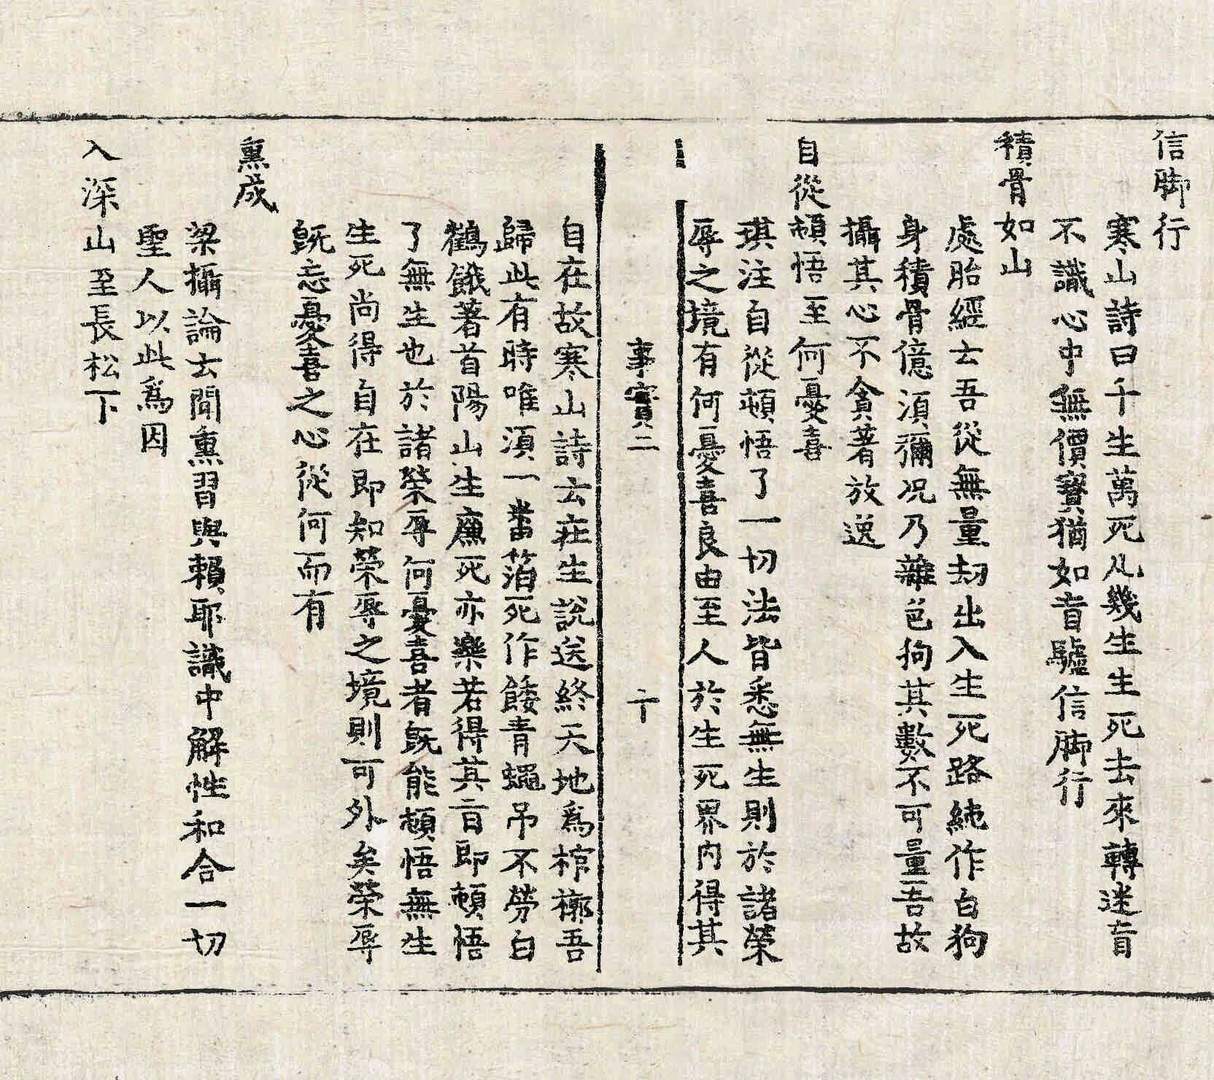 信脚行
寒山詩曰千生萬死凡幾生生死去來轉迷盲
不識心中無價寳猶如盲驢信脚行
積骨如山
處胎經云吾從無量劫出入生死路純作白狗
身積骨億須彌况乃雜色狗其數不可量吾故
攝其心不貪著放逸
自從頓悟至何憂喜
琪注自從頓悟了一切法皆悉無生則於諸榮
辱之境有何憂喜良由至人於生死界內得其
事實二
十
自在故寒山詩云在生說送終天地爲棺槨吾
歸此有時唯須一番箔死作餧青蠅吊不勞白
鶴餓著首陽山生廉死亦樂若得其旨即頓悟
了無生也於諸榮辱何憂喜者旣能頓悟無生
生死尚得自在即知榮辱之境則可外矣榮辱
旣忘憂喜之心從何而有
熏成
梁攝論云聞熏習與賴耶識中解性和合一切
聖人以此爲因
入深山至長松下